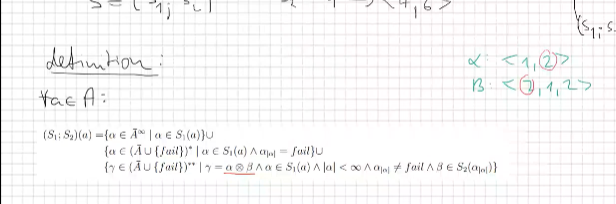 definition:
∀a∈A:
α: <1,2>
B: <2,1,2>
(S₁;S₂)(a) ={α ∈ Ā^∞ | α ∈ S₁(a)}∪
{α ∈ (Ā ∪ {fail})* | α ∈ S₁(a) ∧ α_{|α|} = fail}∪
{γ ∈ (Ā ∪ {fail})** | γ = α ⊗ β ∧ α ∈ S₁(a) ∧ |α| < ∞ ∧ α_{|α|} ≠ fail ∧ β ∈ S₂(α_{|α|})}